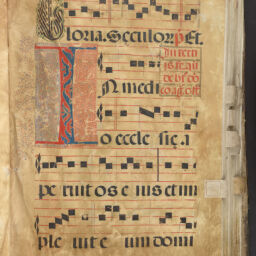 Gloria. Seculorum p Et.
N medi
o eccle się. a
pe ruit os e ius et im
ple uit e um domi